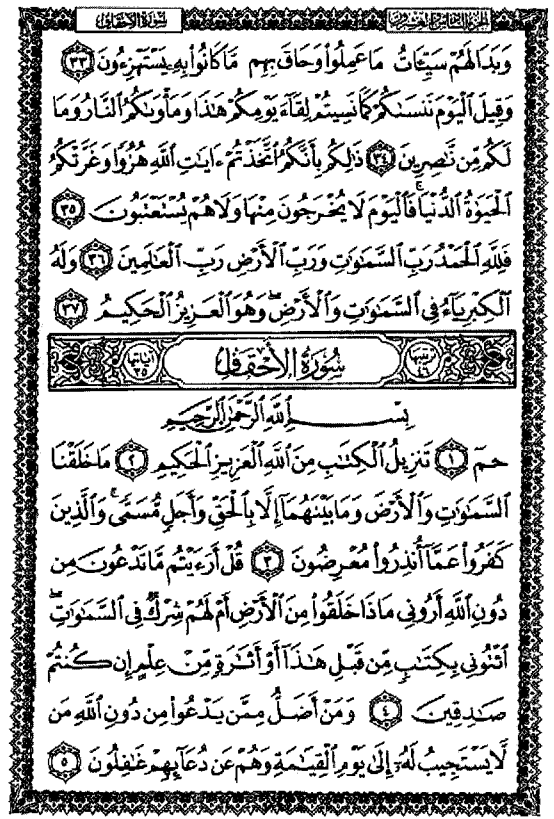 سُورَةُ الأَحْقَافِ الجُزءُ السَّادِسُ وَالعِشْرُونَ
وَبَدَا لَهُمْ سَيِّـَٔاتُ مَا عَمِلُوا۟ وَحَاقَ بِهِم مَّا كَانُوا۟ بِهِۦ يَسْتَهْزِءُونَ ٣٣
وَقِيلَ ٱلْيَوْمَ نَنسَىٰكُمْ كَمَا نَسِيتُمْ لِقَآءَ يَوْمِكُمْ هَٰذَا وَمَأْوَىٰكُمُ ٱلنَّارُ وَمَا
لَكُم مِّن نَّٰصِرِينَ ٣٤ ذَٰلِكُم بِأَنَّكُمُ ٱتَّخَذْتُمْ ءَايَٰتِ ٱللَّهِ هُزُوًا وَغَرَّتْكُمُ
ٱلْحَيَوٰةُ ٱلدُّنْيَا ۚ فَٱلْيَوْمَ لَا يُخْرَجُونَ مِنْهَا وَلَا هُمْ يُسْتَعْتَبُونَ ٣٥
فَلِلَّهِ ٱلْحَمْدُ رَبِّ ٱلسَّمَٰوَٰتِ وَرَبِّ ٱلْأَرْضِ رَبِّ ٱلْعَٰلَمِينَ ٣٦ وَلَهُ
ٱلْكِبْرِيَآءُ فِى ٱلسَّمَٰوَٰتِ وَٱلْأَرْضِ ۖ وَهُوَ ٱلْعَزِيزُ ٱلْحَكِيمُ ٣٧
ترتيبها ٤٦ سُورَةُ الأَحْقَافِ آياتها ٣٥
بِسْمِ ٱللَّهِ ٱلرَّحْمَٰنِ ٱلرَّحِيمِ
حمٓ ١ تَنزِيلُ ٱلْكِتَٰبِ مِنَ ٱللَّهِ ٱلْعَزِيزِ ٱلْحَكِيمِ ٢ مَا خَلَقْنَا
ٱلسَّمَٰوَٰتِ وَٱلْأَرْضَ وَمَا بَيْنَهُمَآ إِلَّا بِٱلْحَقِّ وَأَجَلٍ مُّسَمًّى ۚ وَٱلَّذِينَ
كَفَرُوا۟ عَمَّآ أُنذِرُوا۟ مُعْرِضُونَ ٣ قُلْ أَرَءَيْتُم مَّا تَدْعُونَ مِن
دُونِ ٱللَّهِ أَرُونِى مَاذَا خَلَقُوا۟ مِنَ ٱلْأَرْضِ أَمْ لَهُمْ شِرْكٌ فِى ٱلسَّمَٰوَٰتِ ۖ
ٱئْتُونِى بِكِتَٰبٍ مِّن قَبْلِ هَٰذَآ أَوْ أَثَٰرَةٍ مِّنْ عِلْمٍ إِن كُنتُمْ
صَٰدِقِينَ ٤ وَمَنْ أَضَلُّ مِمَّن يَدْعُوا۟ مِن دُونِ ٱللَّهِ مَن
لَّا يَسْتَجِيبُ لَهُۥٓ إِلَىٰ يَوْمِ ٱلْقِيَٰمَةِ وَهُمْ عَن دُعَآئِهِمْ غَٰفِلُونَ ٥